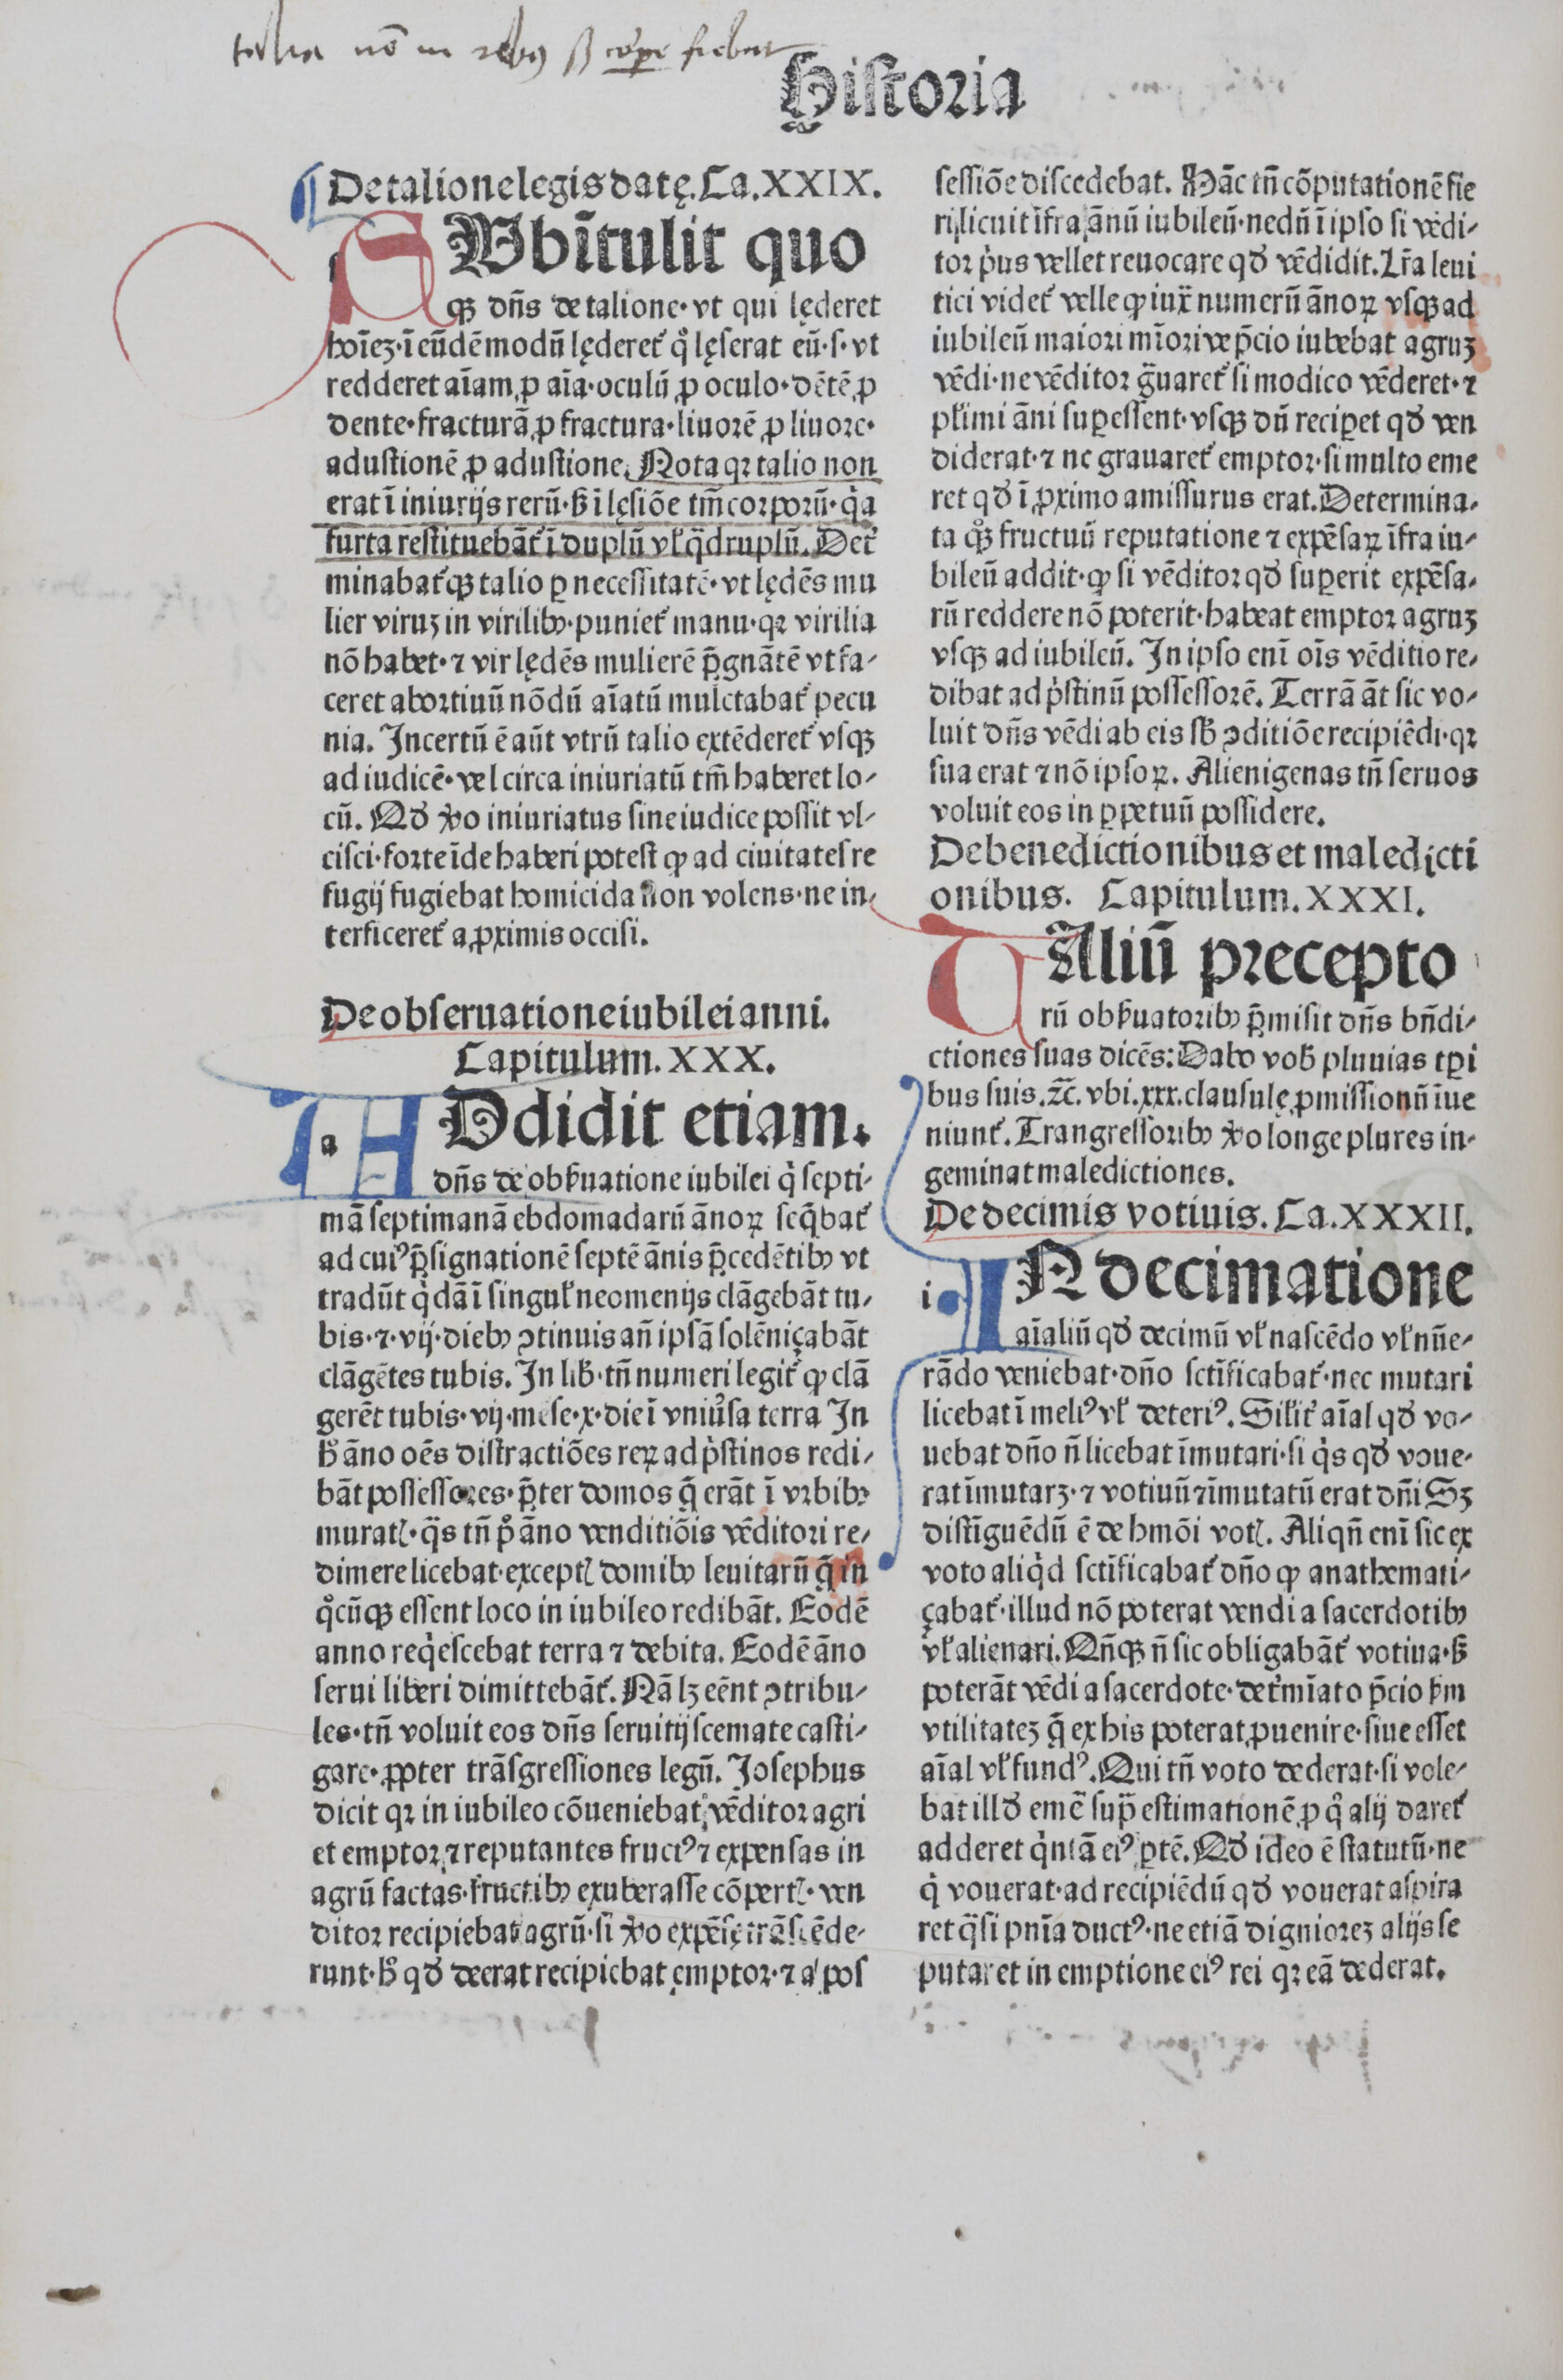 Historia
De talione legis datę. Ca. XXIX.
SVbītulit quo
qꝫ dn̄s de talione· vt qui lęderet
hoīeꝫ·ī eūdē modū lęderet᷑ qͦ lęserat eū·s·vt
redderet aīam ꝓ aīa·oculū ꝓ oculo·dētē ꝓ
dente·fracturā ꝓ fractura·liuorē ꝓ liuore·
adustionē ꝓ adustione. Nota qꝛ talio non
erat ī iniurijs rerū·ß ī lęsiōe tm̄ corporū·qͥa
furta restituebāt᷑ ī duplū vł qᷓdruplū. Det᷑
minabat᷑qꝫ talio ꝑ necessitatē·vt lędēs mu
lier viruꝫ in virilibꝰ·puniet᷑ manu·qꝛ virilia
nō habet·⁊ vir lędēs mulierē p̄gnātē vt fa-
ceret abortiuū nōdū aīatū mulctabat᷑ pecu
nia. Incertū ē aūt vtrū talio extēderet᷑ vsqꝫ
ad iudicē·vel circa iniuriatū tm̄ haberet lo-
cū. Qđ v̓o iniuriatus sine iudice possit vl-
cisci·forte īde haberi potest ꝙ ad ciuitates re
fugij fugiebat homicida non volens·ne in-
terficeret᷑ a ꝓximis occisi.
De obseruatione iubilei anni.
Capitulum. XXX.
a
ADdidit etiam.
dn̄s de obẜuatione iubilei qͥ septi-
mā septimanā ebdomadarū ānoꝝ seq̄bat᷑
ad cuiꝰ p̄signationē septē ānis p̄cedētibꝰ vt
tradūt qͥdā ī singuł neomenijs clāgebāt tu-
bis·⁊·vij·diebꝰ ꝯtinuis an̄ ipsā solēniçabāt
clāgētes tubis. In lib̓·tn̄ numeri legit᷑ ꝙ clā
gerēt tubis·vij·mēse·x·die ī vniu̓sa terra In
h̓ āno oēs distractiōes reꝝ ad pͥstinos redi-
bāt possessores·p̄ter domos q̄ erāt ī vrbibꝰ
muratꝭ·qᷓs tn̄ pͦ āno venditiōis vēditori re-
dimere licebat·exceptꝭ domibꝰ leuitarū q̄ in
qͦcūqꝫ essent loco in iubileo redibāt. Eodē
anno reqͥescebat terra ⁊ debita. Eodē āno
serui liberi dimittebāt᷑. Nā lꝫ eēnt ꝯtribu-
les·tn̄ voluit eos dn̄s seruitij scemate casti-
gare·ꝓpter trāsgressiones legū. Josephus
dicit qꝛ in iubileo cōueniebat vēditor agri
et emptor ⁊ reputantes fructꝰ ⁊ expensas in
agrū factas·fructibꝰ exuberasse cōpertꝭ·ven
ditor recipiebat agrū·si v̓o expēsę trāscēde-
runt·h̓ qđ deerat recipiebat emptor·⁊ a pos
sessiōe discedebat. Hāc tn̄ cōputationē fie
ri licuit īfra ānū iubileū·nedū ī ipso si vēdi-
tor pͥus vellet reuocare qđ vēdidit. Lr̄a leui
tici videt᷑ velle ꝙ iux̄ numerū ānoꝝ vsqꝫ ad
iubileū maiori mīori ve p̄cio iubebat agruꝫ
vēdi·ne vēditor g̈uaret᷑ si modico vēderet·⁊
płimi āni suꝑessent·vsqꝫ dū reciꝑet qđ ven
diderat·⁊ ne grauaret᷑ emptor·si multo eme
ret qđ ī ꝓximo amissurus erat. Determina-
ta qͦqꝫ fructuū reputatione ⁊ expēsaꝝ īfra iu-
bileū addit·ꝙ si vēditor qđ suꝑerit expēsa-
rū reddere nō poterit·habeat emptor agruꝫ
vsqꝫ ad iubileū. In ipso enī oīs vēditio re-
dibat ad pͥstinū possessorē. Terrā āt sic vo-
luit dn̄s vēdi ab eis sb̓ ꝯditiōe recipiēdi·qꝛ
sua erat ⁊ nō ipsoꝝ. Alienigenas tn̄ seruos
voluit eos in ꝑpetuū possidere.
De benedictionibus et maledicti
onibus. Capitulum. XXXI.
TAliū precepto
rū obẜuatoribꝰ p̄misit dn̄s bn̄di-
ctiones suas dicēs: Dabo vob̓ pluuias tꝑi
bus suis. ⁊c̄. vbi. xxx. clausulę ꝓmissionū īue
niunt᷑. Trangressoribꝰ v̓o longe plures in-
geminat maledictiones.
De decimis votiuis. Ca. XXXII.
i
IN decimatione
aīaliū qđ decimū vł nascēdo vł nūe-
rādo veniebat·dn̄o sctīficabat᷑·nec mutari
licebat ī meliꝰ vł deteriꝰ. Siłit᷑ aīal qđ vo-
uebat dn̄o n̄ licebat īmutari·si qͥs qđ voue-
rat īmutarꝫ·⁊ votiuū ⁊ īmutatū erat dn̄i Sꝫ
distīguēdū ē de hmōi votꝭ. Aliqn̄ enī sic ex
voto aliqͥd sctīficabat᷑ dn̄o ꝙ anathemati-
çabat᷑·illud nō poterat vendi a sacerdotibꝰ
vł alienari. Qn̄qꝫ n̄ sic obligabāt᷑ votiua·ß
poterāt vēdi a sacerdote·det᷑mīato p̄cio ẜm
vtilitateꝫ q̄ ex his poterat ꝓuenire·siue esset
aīal vł fundꝰ. Qui tn̄ voto dederat·si vole-
bat illđ emē sup̄ estimationē ꝓ qͦ alij daret᷑
adderet qͥntā eiꝰ ꝑtē. Qđ ideo ē statutū·ne
qͥ vouerat·ad recipiēdū qđ vouerat aspira
ret qᷓsi pn̄īa ductꝰ·ne etiā dignioreꝫ alijs se
putaret in emptione eiꝰ rei qꝛ eā dederat.